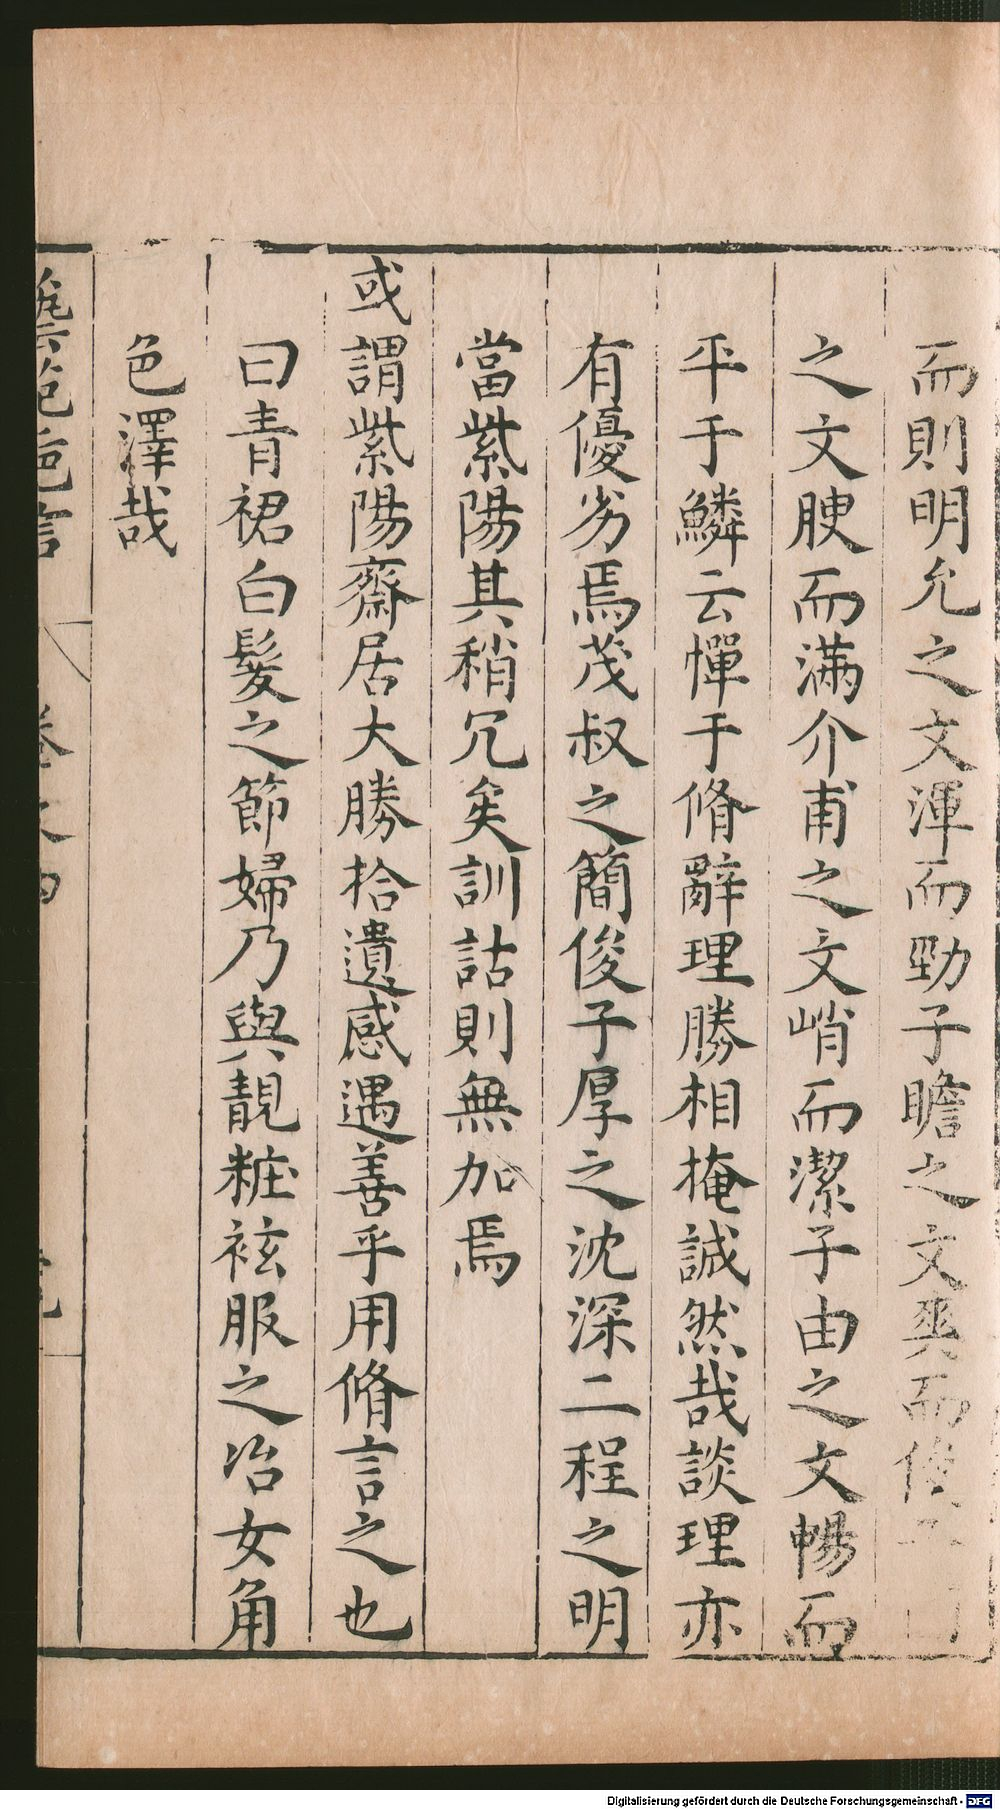 而則明允之文渾而勁子瞻之文爽而俊子固
之文腴而滿介甫之文峭而潔子由之文暢而
平于鱗云憚于脩辭理勝相掩誠然哉談理亦
有優劣焉茂叔之簡俊子厚之沈深二程之明
當紫陽其稍冗矣訓詁則無加焉
或謂紫陽齋居大勝拾遺感遇善乎用脩言之也
曰青裙白髮之節婦乃與靚粧袨服之冶女角
色澤哉
藝苑巵言 卷之四
Digitalisierung gefördert durch die Deutsche Forschungsgemeinschaft - DFG